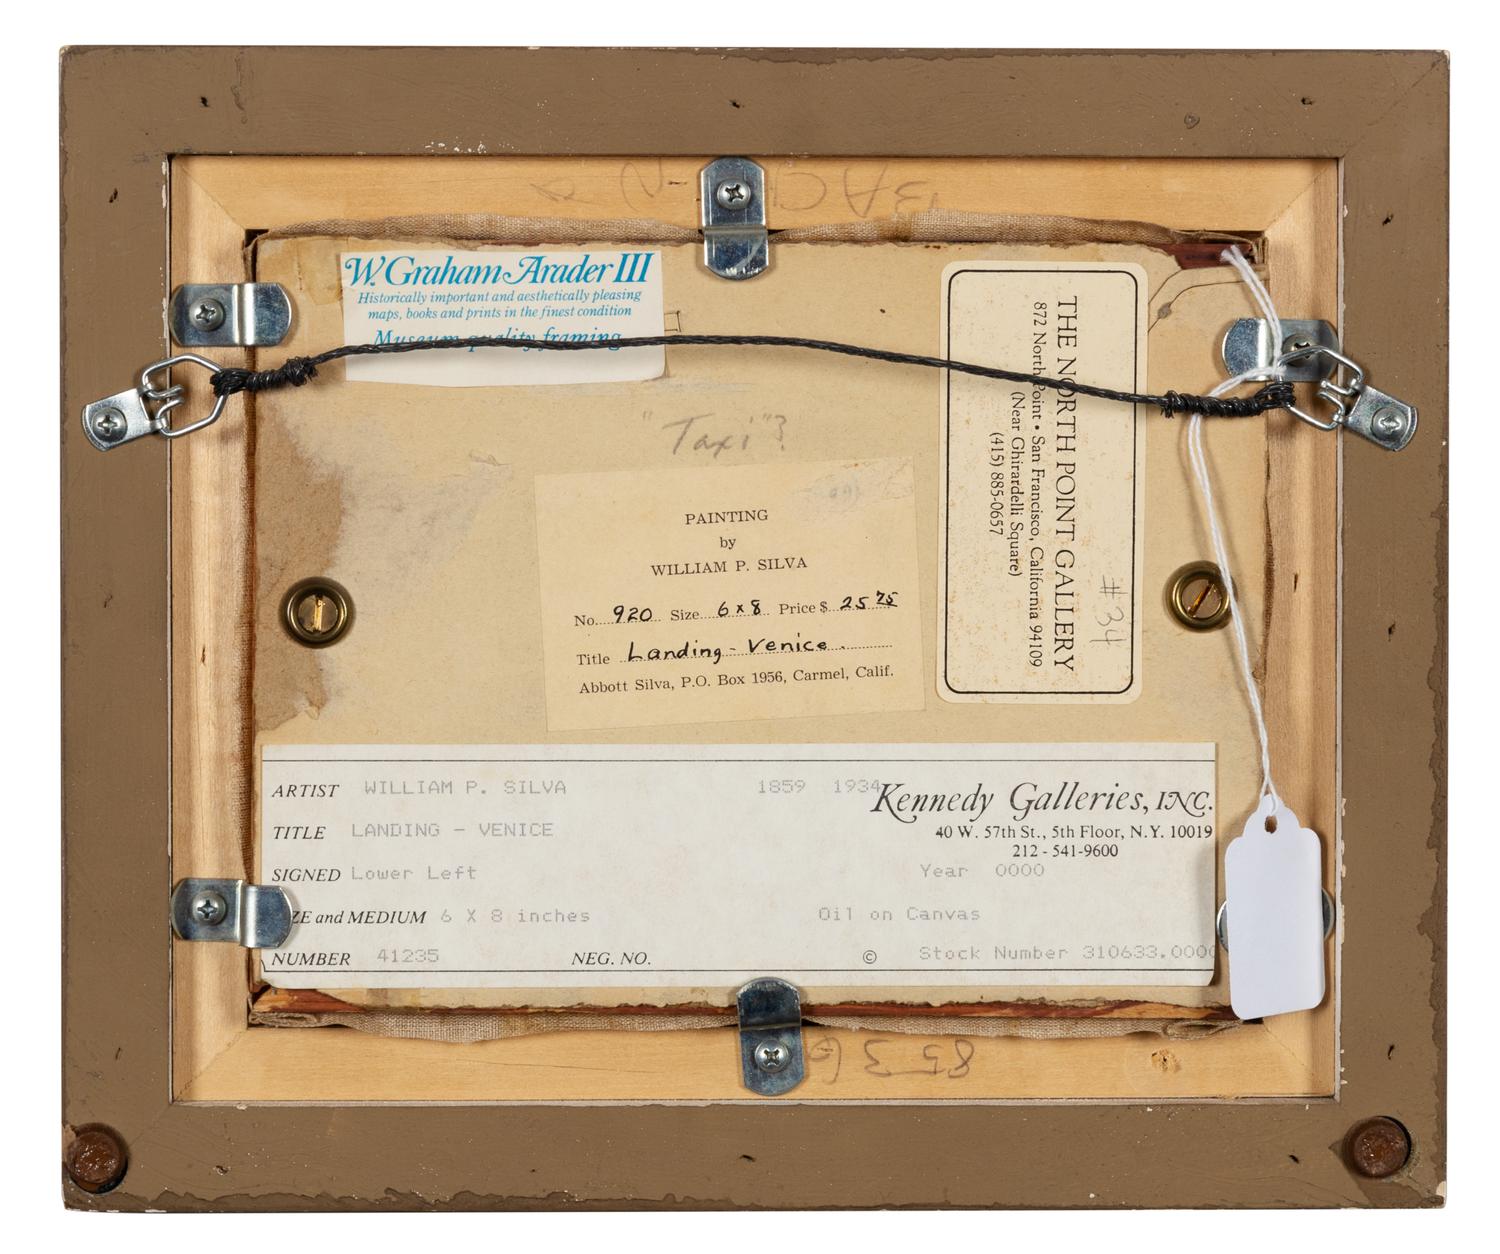 W. Graham Arader III
Historically important and aesthetically pleasing
maps, books and prints in the finest condition
Museum quality framing
"Taxi"?
THE NORTH POINT GALLERY
872 North Point • San Francisco, California 94109
(Near Ghirardelli Square)
(415) 885-0657
#34
PAINTING
by
WILLIAM P. SILVA
No. 920 Size 6x8 Price $ 25 75
Title Landing - Venice
Abbott Silva, P.O. Box 1956, Carmel, Calif.
ARTIST WILLIAM P. SILVA 1859 1934
Kennedy Galleries, INC.
40 W. 57th St., 5th Floor, N.Y. 10019
212 - 541-9600
TITLE LANDING - VENICE
SIGNED Lower Left Year 0000
ZE and MEDIUM 6 X 8 inches Oil on Canvas
NUMBER 41235 NEG. NO. © Stock Number 310633.0000